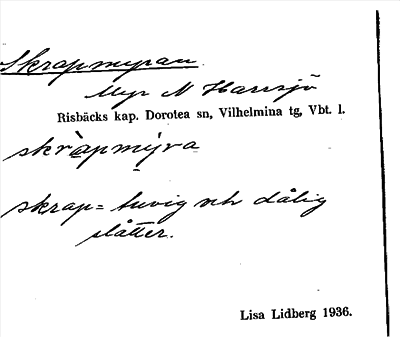 Skrapmyran.
Myr N Harrsjö
Risbäcks kap. Dorotea sn, Vilhelmina tg, Vbt. l.
skràpmýra
skrap= tuvig och dålig
slåtter.
Lisa Lidberg 1936.